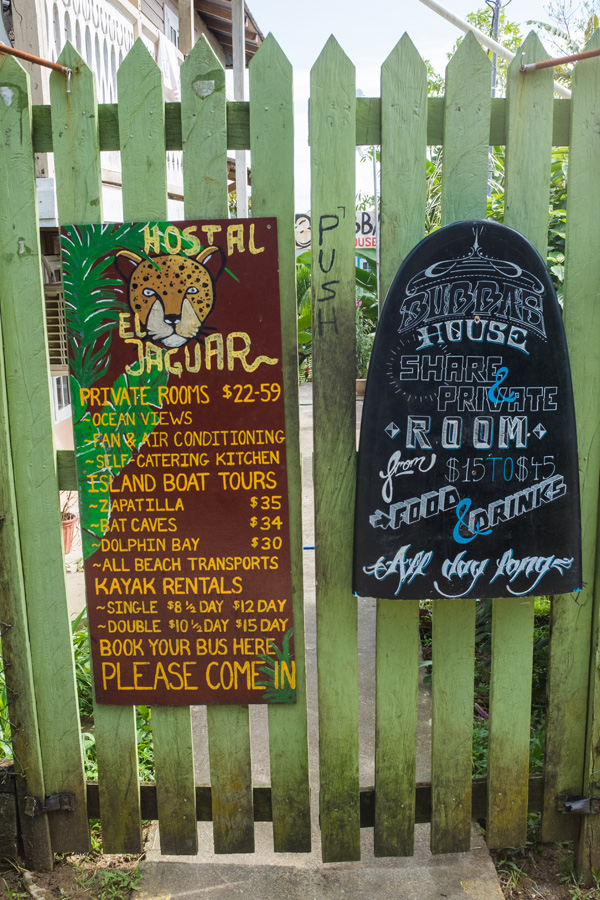 HOSTAL
EL
JAGUAR
PRIVATE ROOMS $22-59
~OCEAN VIEWS
~FAN & AIR CONDITIONING
~SELF-CATERING KITCHEN
ISLAND BOAT TOURS
~ZAPATILLA $35
~BAT CAVES $34
~DOLPHIN BAY $30
~ALL BEACH TRANSPORTS
KAYAK RENTALS
~SINGLE $8 ½ DAY $12 DAY
~DOUBLE $10 ½ DAY $15 DAY
BOOK YOUR BUS HERE
PLEASE COME IN
PUSH
BUBBAS
HOUSE
SHARE &
PRIVATE
ROOM
from $15 TO $45
FOOD & DRINKS
~All day long~